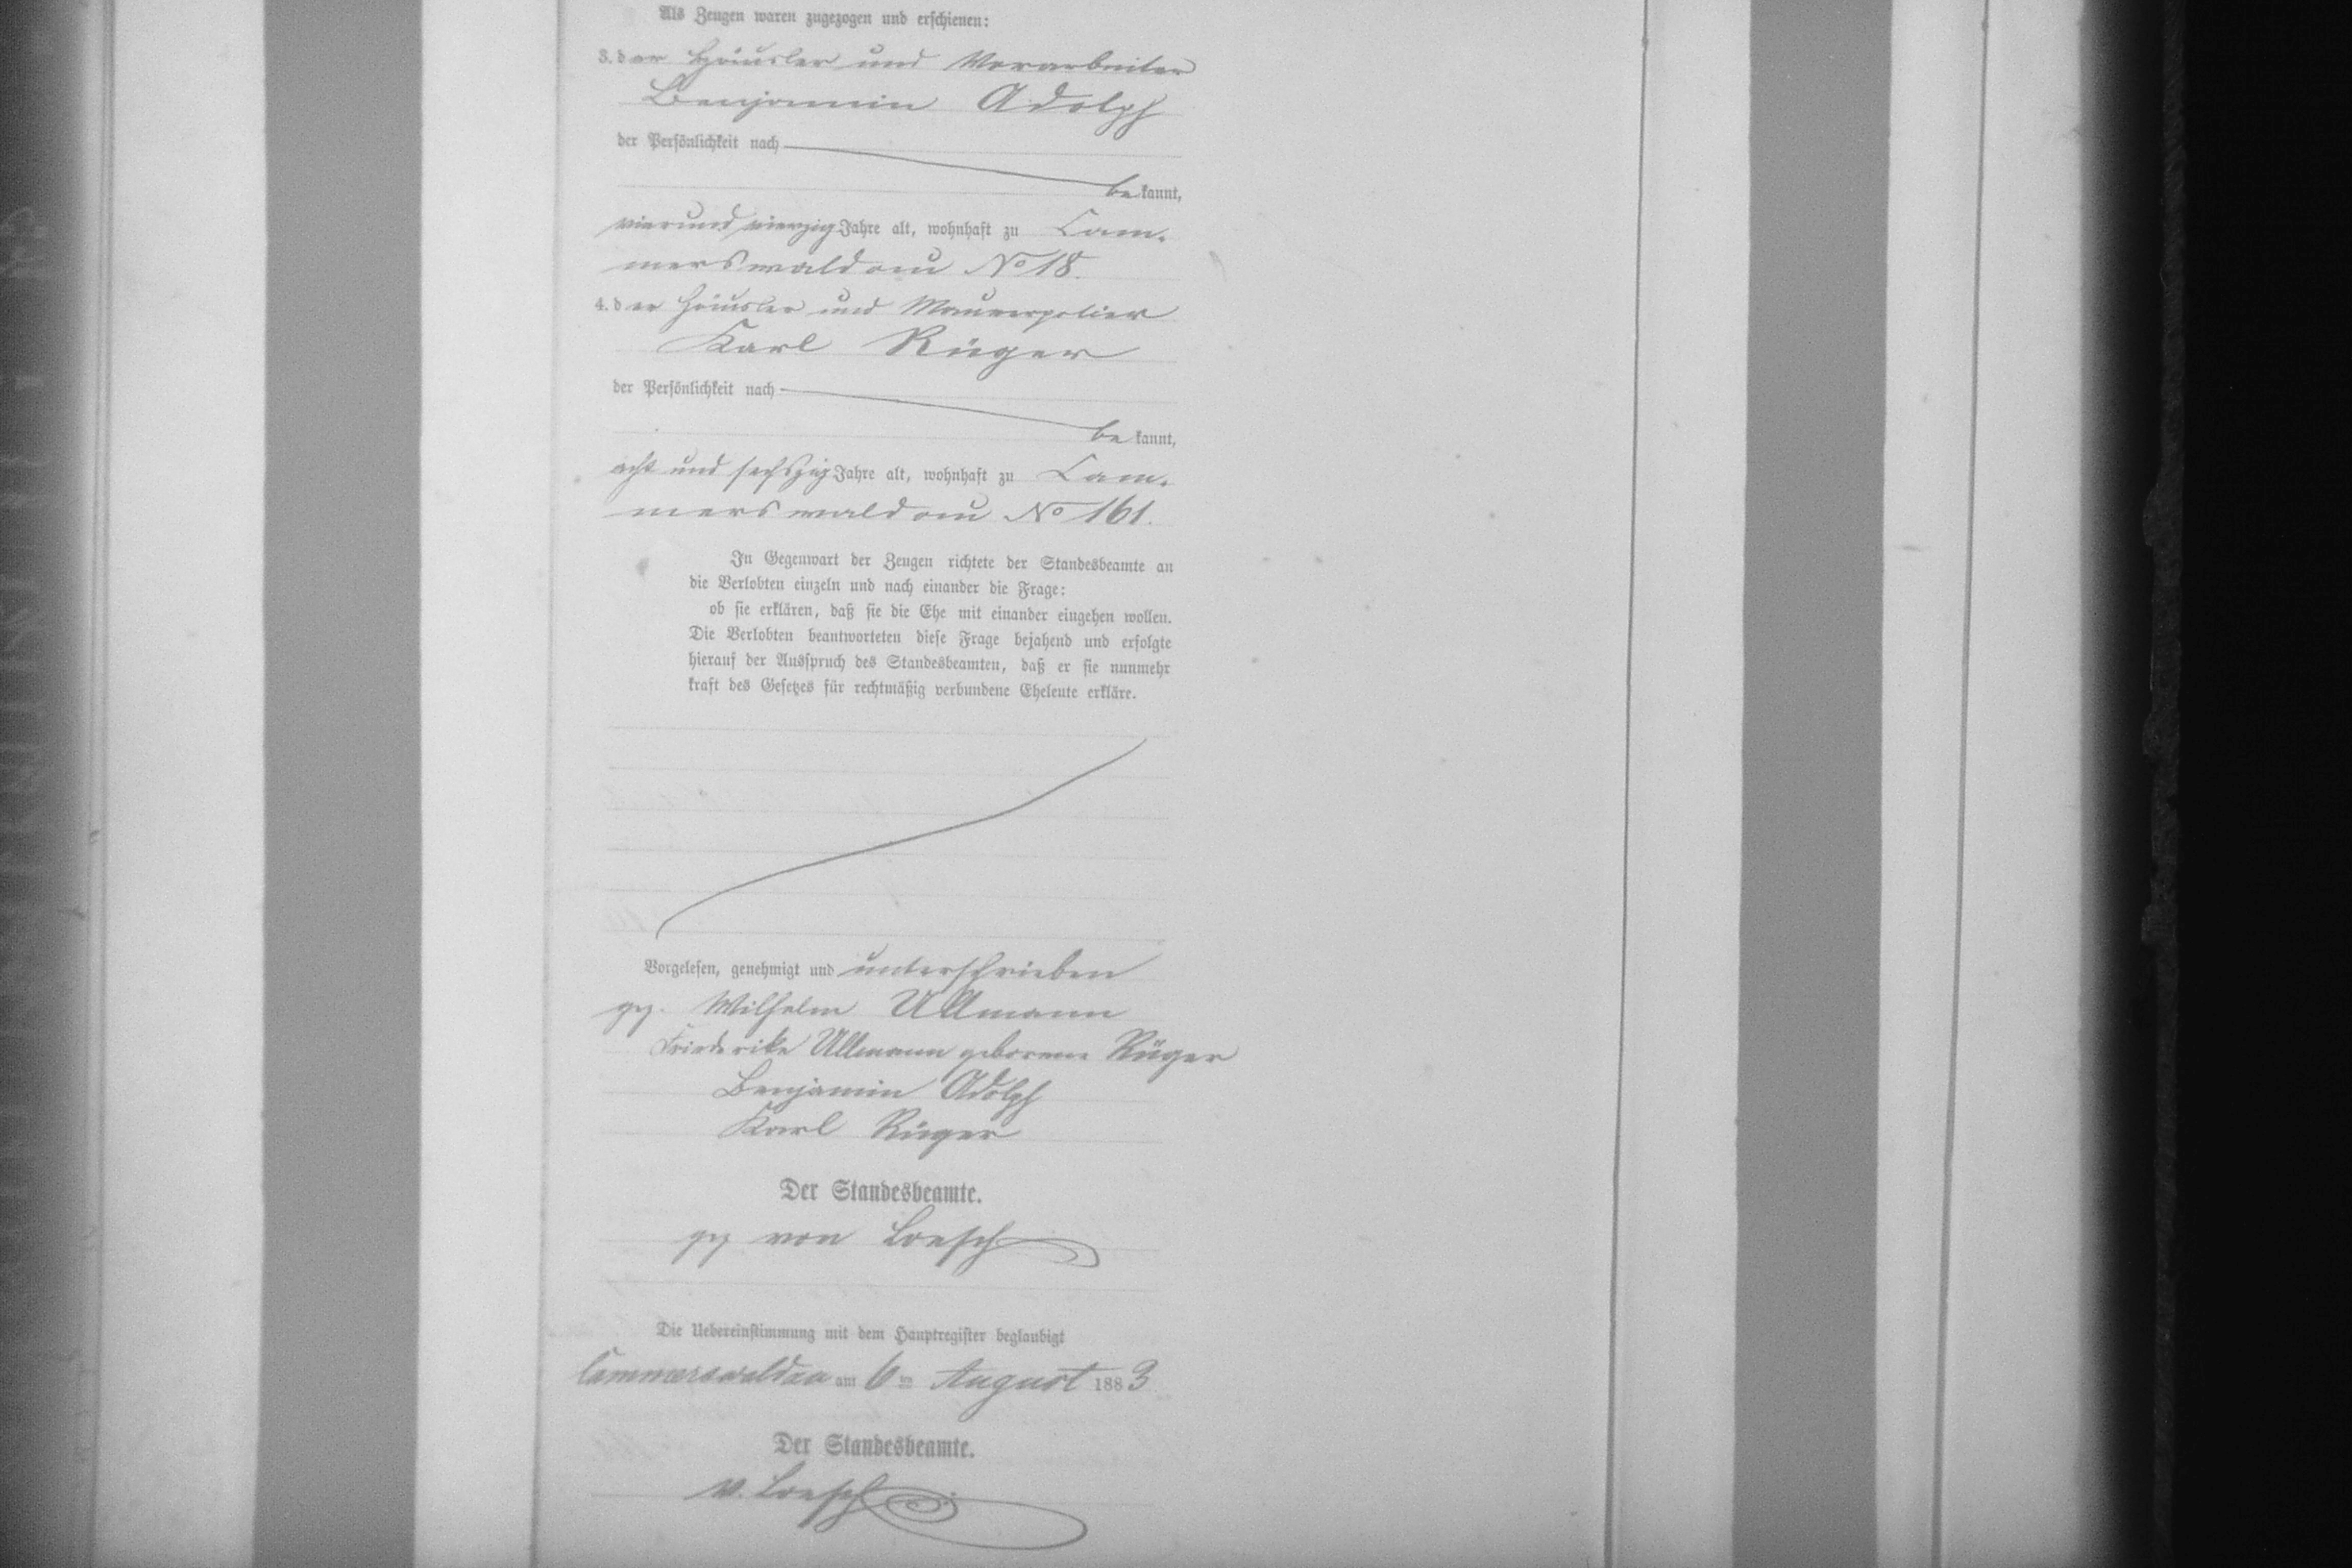 Als Zeugen waren zugezogen und erschienen:
3. der Häusler und Vorarbeiter
Benjamin Adolph
der Persönlichkeit nach
bekannt,
vierund vierzig Jahre alt, wohnhaft zu Cam-
merswaldau No 18.
4. der Häusler und Maurerpolier
Karl Rüger
der Persönlichkeit nach
bekannt,
acht und sechszig Jahre alt, wohnhaft zu Cam-
merswaldau No 161.
In Gegenwart der Zeugen richtete der Standesbeamte an
die Verlobten einzeln und nach einander die Frage:
ob sie erklären, daß sie die Ehe mit einander eingehen wollen.
Die Verlobten beantworteten diese Frage bejahend und erfolgte
hierauf der Ausspruch des Standesbeamten, daß er sie nunmehr
kraft des Gesetzes für rechtmäßig verbundene Eheleute erkläre.
Vorgelesen, genehmigt und unterschrieben
gez. Wilhelm Ullmann
Friederike Ullmann geborene Rüger
Benjamin Adolph
Karl Rüger
Der Standesbeamte.
gez von Loesch
Die Uebereinstimmung mit dem Hauptregister beglaubigt
Cammerswaldau am 6ten August 1883
Der Standesbeamte.
v. Loesch